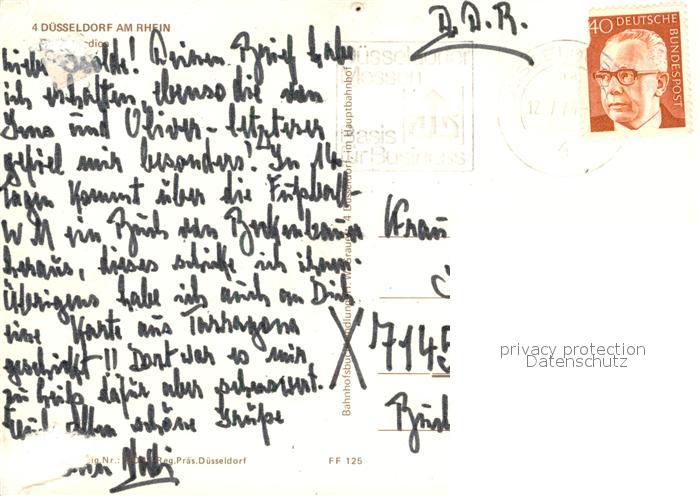 4 DÜSSELDORF AM RHEIN
D.D.R.
40 DEUTSCHE BUNDESPOST
Düsseldorfer
Messen
Basis
für Business
12.7.74
4
! Deinen Brief habe
ich erhalten, ebenso die von
Jens und Oliver - letzterer
gefiel mir besonders! In 14
Tagen kommt über die Fußball-
WM ein Buch von Beckenbauer
heraus, dieses schicke ich ihm.
Übrigens habe ich auch an Dich
eine Karte aus Tarragona
geschickt!! Dort war es mir
zu heiß dafür aber
Euch allen schöne Grüße
Frau
7145
Bahnhofsbuchhandlungen
4 Düsseldorf im Hauptbahnhof
Reg.Präs.Düsseldorf
FF 125
privacy protection
Datenschutz